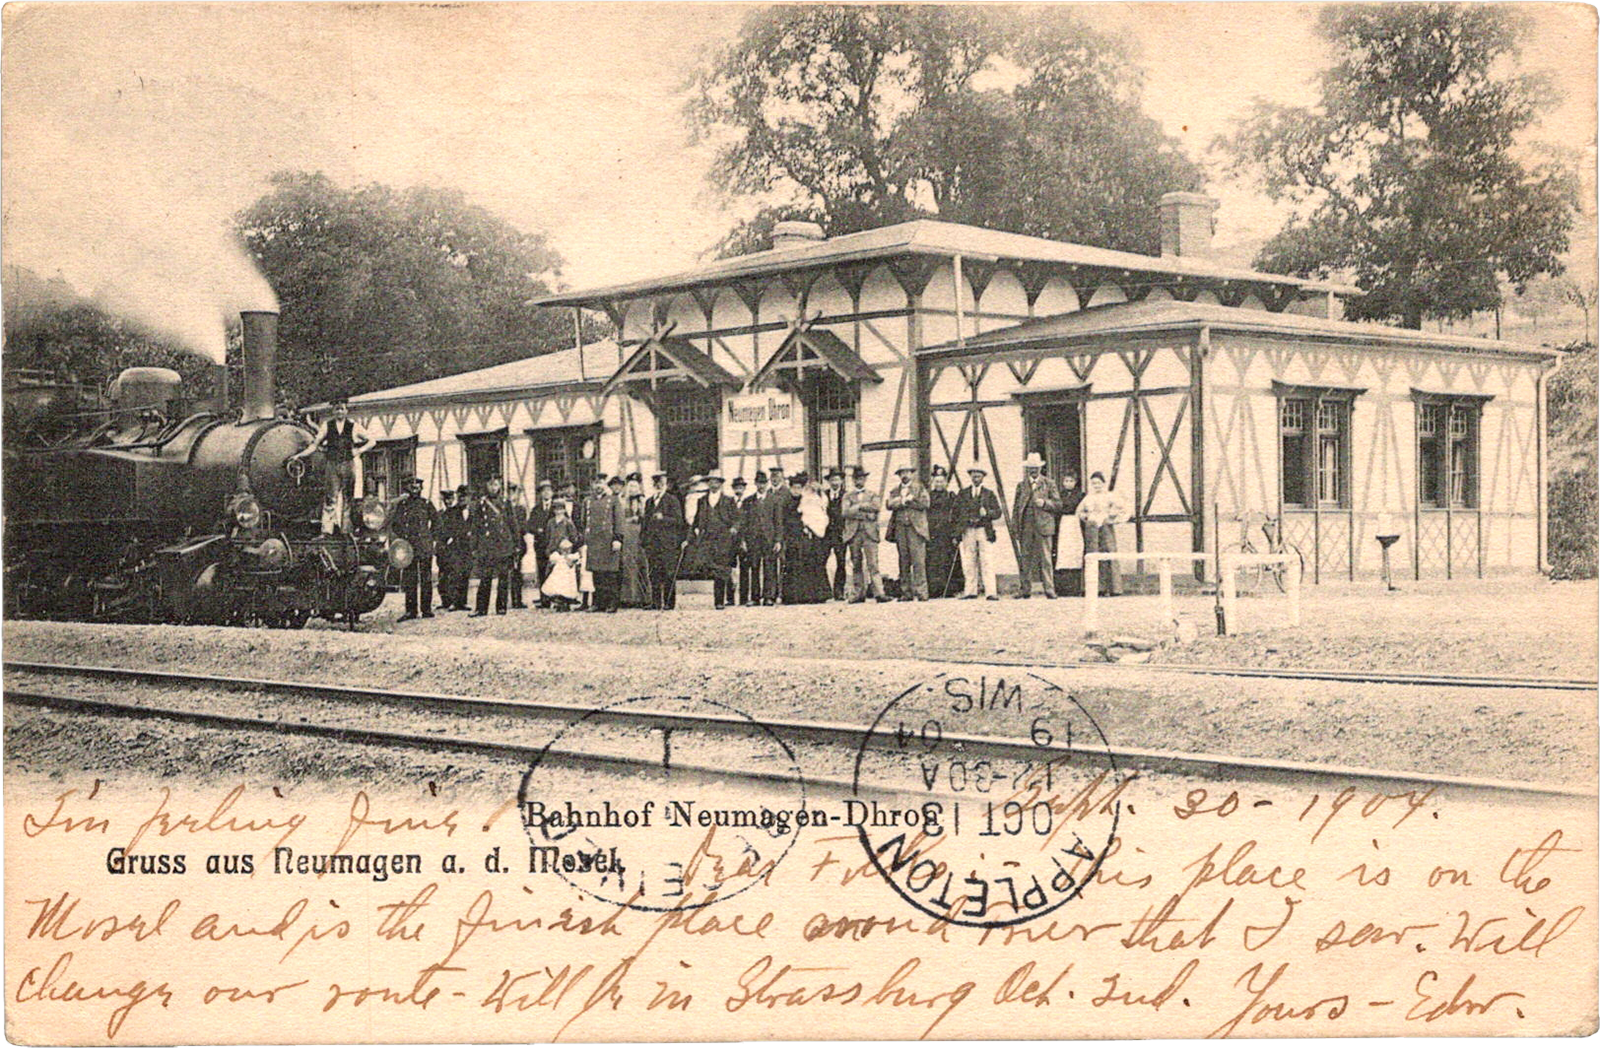 Neumagen Dhron
WIS
19 04
12-30A
OCT 13
APPLETON
Bahnhof Neumagen-Dhron
Gruss aus Neumagen a. d. Mosel.
I'm feeling fine. Sept. 30 - 1904.
Dear Folks:- This place is on the
Mosel and is the finest place around here that I saw. Will
change our route - Will be in Strassburg Oct. 2nd. Yours - Edw.